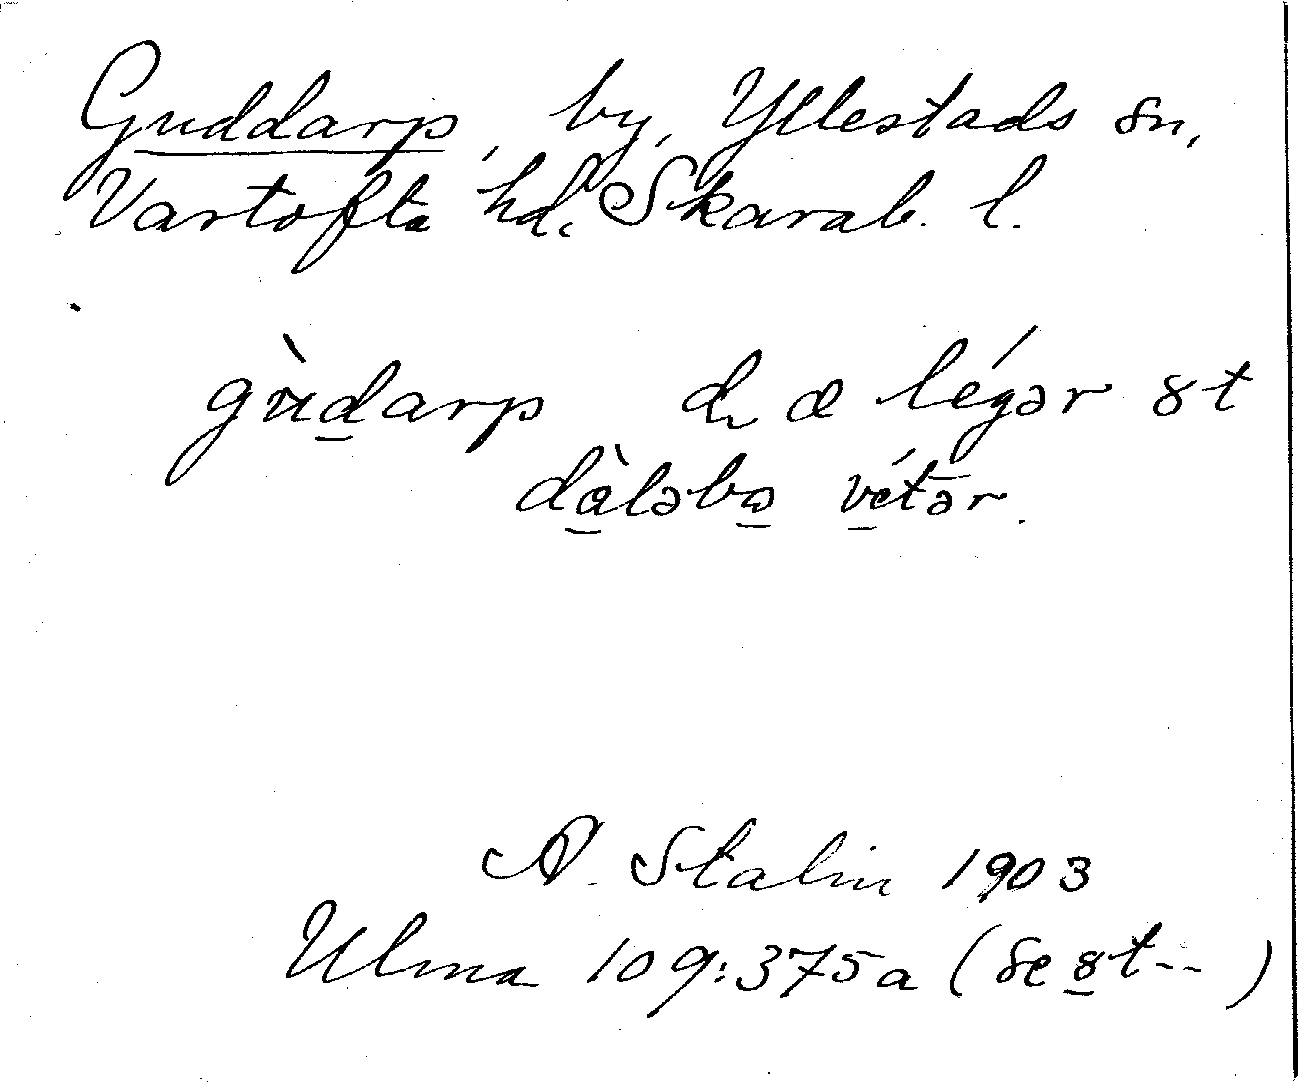 Guddarp, by, Yllestads sn,
Vartofta hd. Skarab. l.
gùdarp d æ légər st
dàləbo vétər.
A. Stalin 1903
Ulma 109:375a (se st-- )